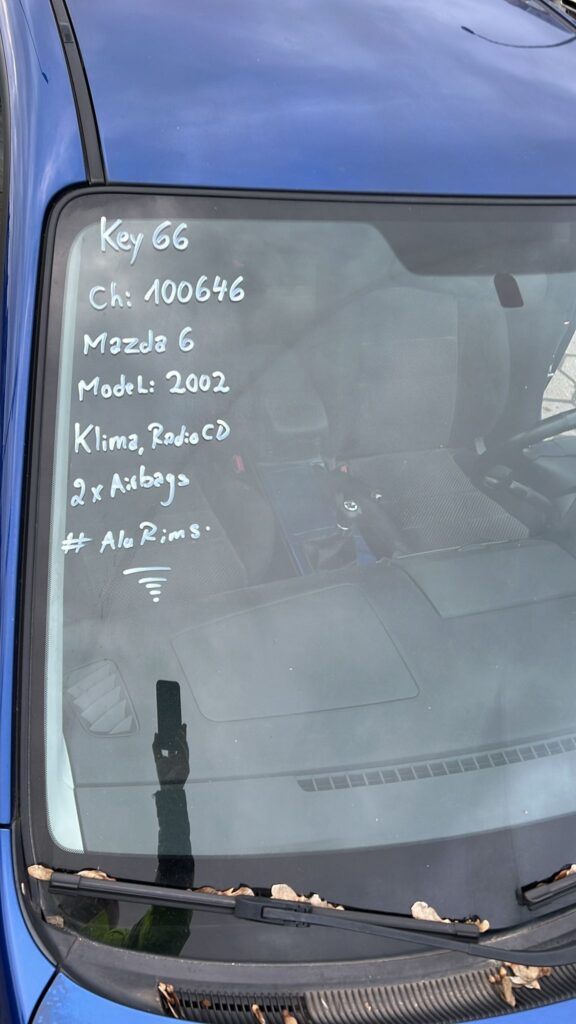 Key 66
Ch: 100646
Mazda 6
Model: 2002
Klima, Radio CD
2x Airbags
# Alu Rims.